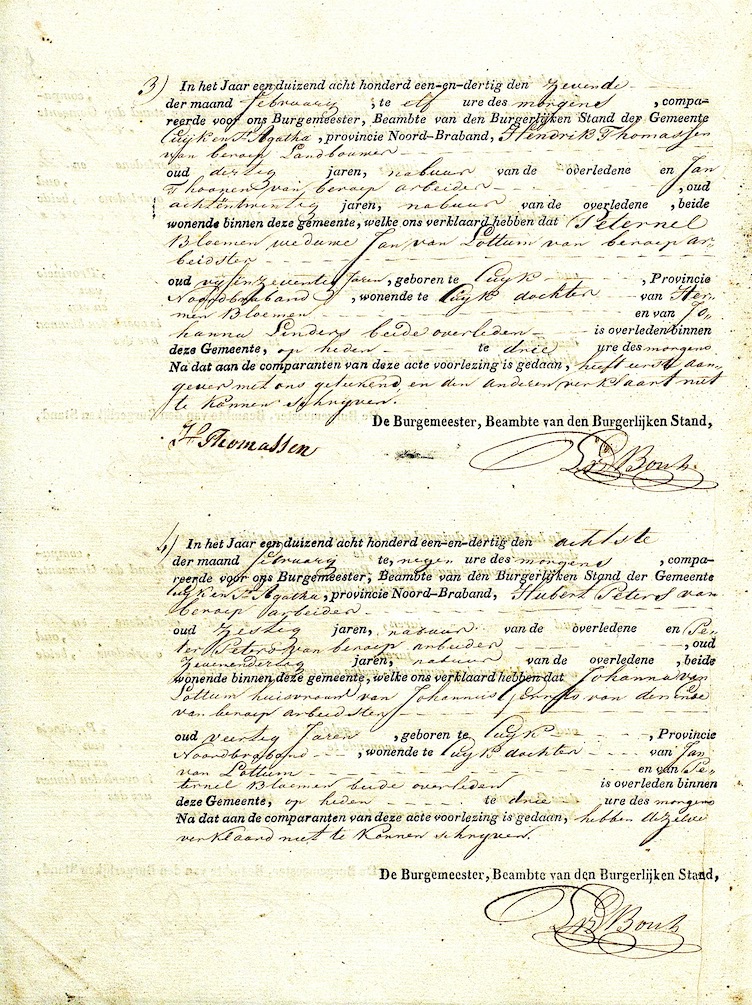 3) In het Jaar een duizend acht honderd een-en-dertig den zevende
der maand february , te elf ure des morgens , compa-
reerde voor ons Burgemeester, Beambte van den Burgerlijken Stand der Gemeente
Cuijk en St Agatha , provincie Noord-Braband, Hendrik Thomassen
van beroep Landbouwer
oud dertig jaren, nabuur van de overledene en Jan
Thoonen van beroep arbeider , oud
achtentwintig jaren, nabuur van de overledene , beide
wonende binnen deze gemeente, welke ons verklaard hebben dat Peternel
Bloemen weduwe Jan van Lottum van beroep ar-
beidster
oud vijfenzeventig Jaren , geboren te Cuijk , Provincie
Noordbraband , wonende te Cuijk dochter van Her-
men Bloemen en van Jo-
hanna Linders beide overleden is overleden binnen
deze Gemeente, op heden te drie ure des morgens
Na dat aan de comparanten van deze acte voorlezing is gedaan, heeft eerst aan-
gever met ons getekend en den anderen verklaart niet
te konnen schrijven.
De Burgemeester, Beambte van den Burgerlijken Stand,
H Thomassen
4) In het Jaar een duizend acht honderd een-en-dertig den achtste
der maand february te, negen ure des morgens , compa-
reerde voor ons Burgemeester, Beambte van den Burgerlijken Stand der Gemeente
Cuijk en St Agatha , provincie Noord-Braband, Hubert Peters van
beroep arbeider
oud zestig jaren, nabuur van de overledene en Pe-
ter Peters van beroep arbeider , oud
zevenendertog jaren, nabuur van de overledene , beide
wonende binnen deze gemeente, welke ons verklaard hebben dat Johanna van
Lottum huisvrouw van Johannis Gerrits van den Ende
van beroep arbeidster
oud veertig Jaren , geboren te Cuijk , Provincie
Noordbraband , wonende te Cuijk dochter van Jan
van Lottum en van Pe-
ternel Bloemen beide overleden is overleden binnen
deze Gemeente, op heden te drie ure des morgens
Na dat aan de comparanten van deze acte voorlezing is gedaan, hebben dezelve
verklaard niet te konnen schrijven.
De Burgemeester, Beambte van den Burgerlijken Stand,